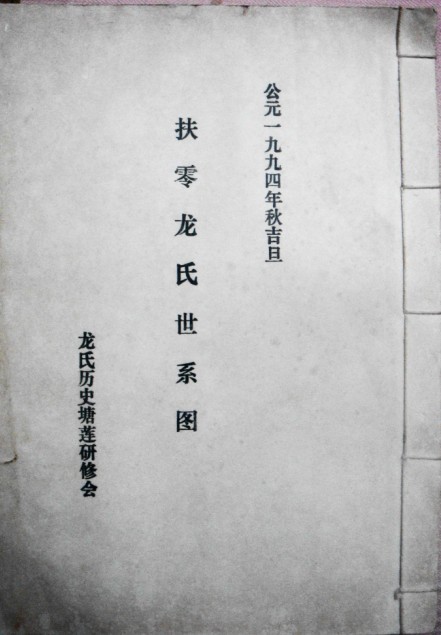 公元一九九四年秋吉旦
扶零龙氏世系图
龙氏历史塘莲研修会